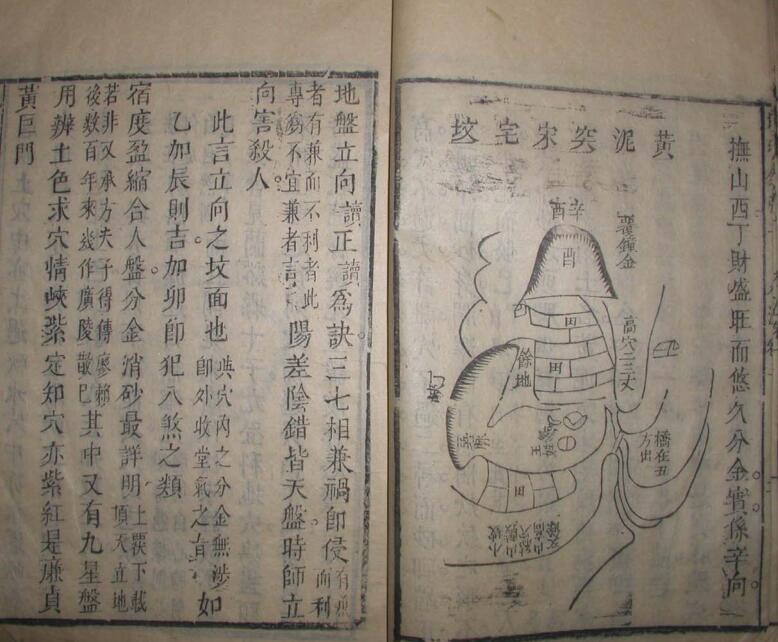 撫山西丁財盛旺而悠久分金實係辛向
黃泥突宋宅坟
覆鐘金
辛酉
酉
高穴二三丈
田
田
餘地
橋在丑
方出
田
地盤立向讀正讀為訣三七相兼禍即侵
者有兼而不利者此
專為不宜兼者言
陽差陰錯皆天盤時師立
向害殺人
此言立向之坟面也
與穴內之分金無涉
即外收堂氣之
如
乙加辰則吉加卯即犯八煞之類
宿度盈縮合人盤分金消砂最詳明
上覆下載
頂天立地
若非又承方夫子得傳廖賴
後數百年來幾作廣陵散已
其中又有九星盤
用辨土色求穴情峽紫定知穴亦紫紅是廉貞
黃巨門